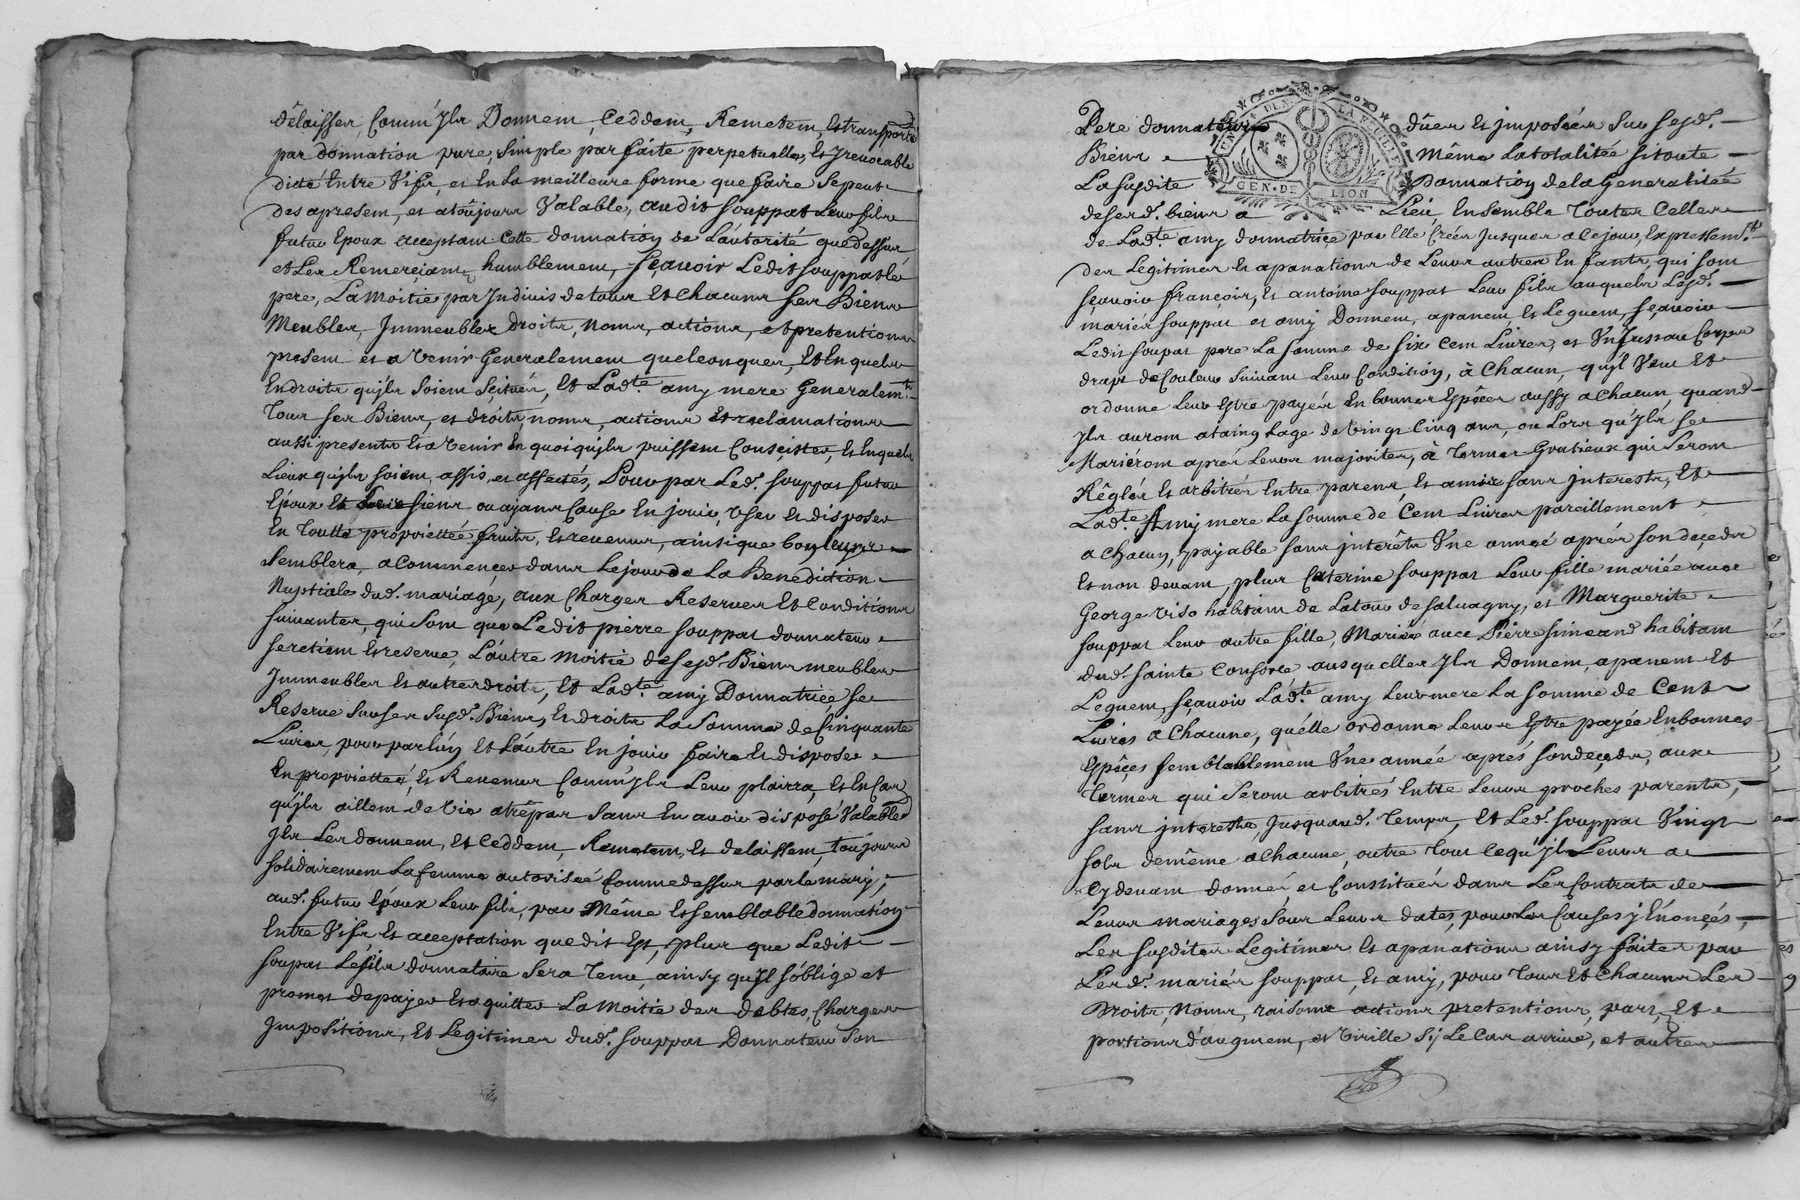 délaisser, Comm'Ils Donnent, Ceddent, Remetent, Et transporte
par donnation pure, simple parfaite perpetuelle, Et Irrevocable
ditte Entre Vifs, et En La meilleure forme que faire Se peut
des apresent, et a toûjours Valable, audit Souppat Leur fils
futur Epoux acceptant Cette donnation de L'autorité que dessus
et Les Remerciant humblement, Sçauoir Ledit Souppat Le
pere, La Moitié par Indiuis de tous Et Chacuns ses Biens
Meubles, Immeubles droits, noms, actions, et pretentions
present et a Venir Generalement quelconques, Et En quels
Endroits qu'ils Soient Scitués, Et Lad.te amy mere Generalem.t
Tous ses Biens, et droits, noms, actions Et reclamations
aussi presents Et a Venir En quoi qu'ils puissent Consister, Et En quels
Lieux qu'ils soient assis et affectés, Pour par Led. Souppat futur
Epoux Et Les siens ou ayans Cause En jouir, User Et disposer
En Toutte proprietteé fruits, Et reuenus, ainsi que bon Leur
Semblera, a Commencer dans Le jour de La Benediction
Nuptiale dud. mariage, aux Charges Reserues Et Conditions
Suiuantes, qui Sont que Ledit pierre Souppat donnateur
se retient Et reserue, L'autre Moitié de sesd. Biens meubles
Immeubles Et autres droits, Et Lad.te amy Donnatrice se
Reserue Sur ses Susd. Biens, Et droits La Somme de Cinquante
Liures, pour par L'un Et L'autre En jouir faire Et disposer
En proprietteé, Et Reuenus Comm'Ils Leur plairra, Et En Cas
qu'ils aillent de Vie a trépas Sans En auoir disposé Valablem.t
Ils Les donnent, Et Ceddent, Remetent, Et delaissent, toûjours
solidairement La femme autorisée Comme dessus par le mary,
aud. futur Epoux Leur fils, par Même Et semblable donnation
Entre Vifs Et acceptation que dit Est, plus que Ledit
Soupat Le fils donnataire Sera Tenu, ainsy qu'Il S'oblige et
promet de payer Et aquitter La Moitié des debtes, Charges
Impositions, Et Legitimes dud. Souppat Donnateur Son
Pere donnateur dües Et Imposées Sur sesd.
Biens Même La totalitée si toute
La Susdite Donnation de la Generalitée
de sesd. biens a Lieu, Ensemble Toutes Celles
de Lad.te amy donnatrice par Elle Créés Jusques a Ce jour, Expressem.t
des Legitimes Et apanations de Leurs autres Enfants, qui sont
Sçauoir françois, Et antoine Souppat Leurs fils auquels Lesd.
mariés Souppat et amy Donnent, apanent Et Leguent, Sçauoir
Ledit Soupat pere La Somme de Six Cent Liures, et Un Justau Corps
drapt de Couleur Suiuant Leur Condition, à Chacun, qu'il Veut Et
ordonne Leur Estre payés En bonnes Espéces aussy a Chacun, quand
Ils auront ataint L'age de Vingt Cinq ans, ou Lors qu'ils se
Mariéront aprés Leurs majoritez, à Termes Gratieux qui Seront
Réglés Et arbitrés Entre parens Et amis sans interests, Et
Lad.te Amy mere La Somme de Cent Liures pareillement
a Chacun, payable sans interêts Vne année aprés son deçeds
Et non deuant, plus Caterine Souppat Leur fille mariée auec
George Viso habitant de Latour de Saluagny, et Marguerite
Souppat Leur autre fille, Mariée auec Pierre Simeand habitant
dud. Sainte Consorce ausquelles Ils Donnent, apanent Et
Leguent, Sçauoir Lad.te amy Leur mere La Somme de Cent
Liures a Chacune, qu'elle ordonne Leurs Estre payée En bonnes
Espéçes semblablement Vne année aprés son deçeds, aux
Termes qui Seront arbitrés Entre Leurs proches parents,
sans interests Jusquaud. Temps, Et Led. Souppat Vingt
sols de même a Chacune outre Tout Ce qu'Il Leurs a
Cy deuant donnés et Constitués dans Les Contrats de
Leurs mariages Sous Leurs dates, pour Les Causes y Enonçés,
Les Susdites Legitimes Et apanations ainsy faites par
Lesd. mariés Souppat, Et amy, pour Tous Et Chacuns Les
Droits, Noms, raisons actions pretentions, parts, Et
portions d'augment, et Virille Sy Le Cas arriue, et autres
GEN. DE LION